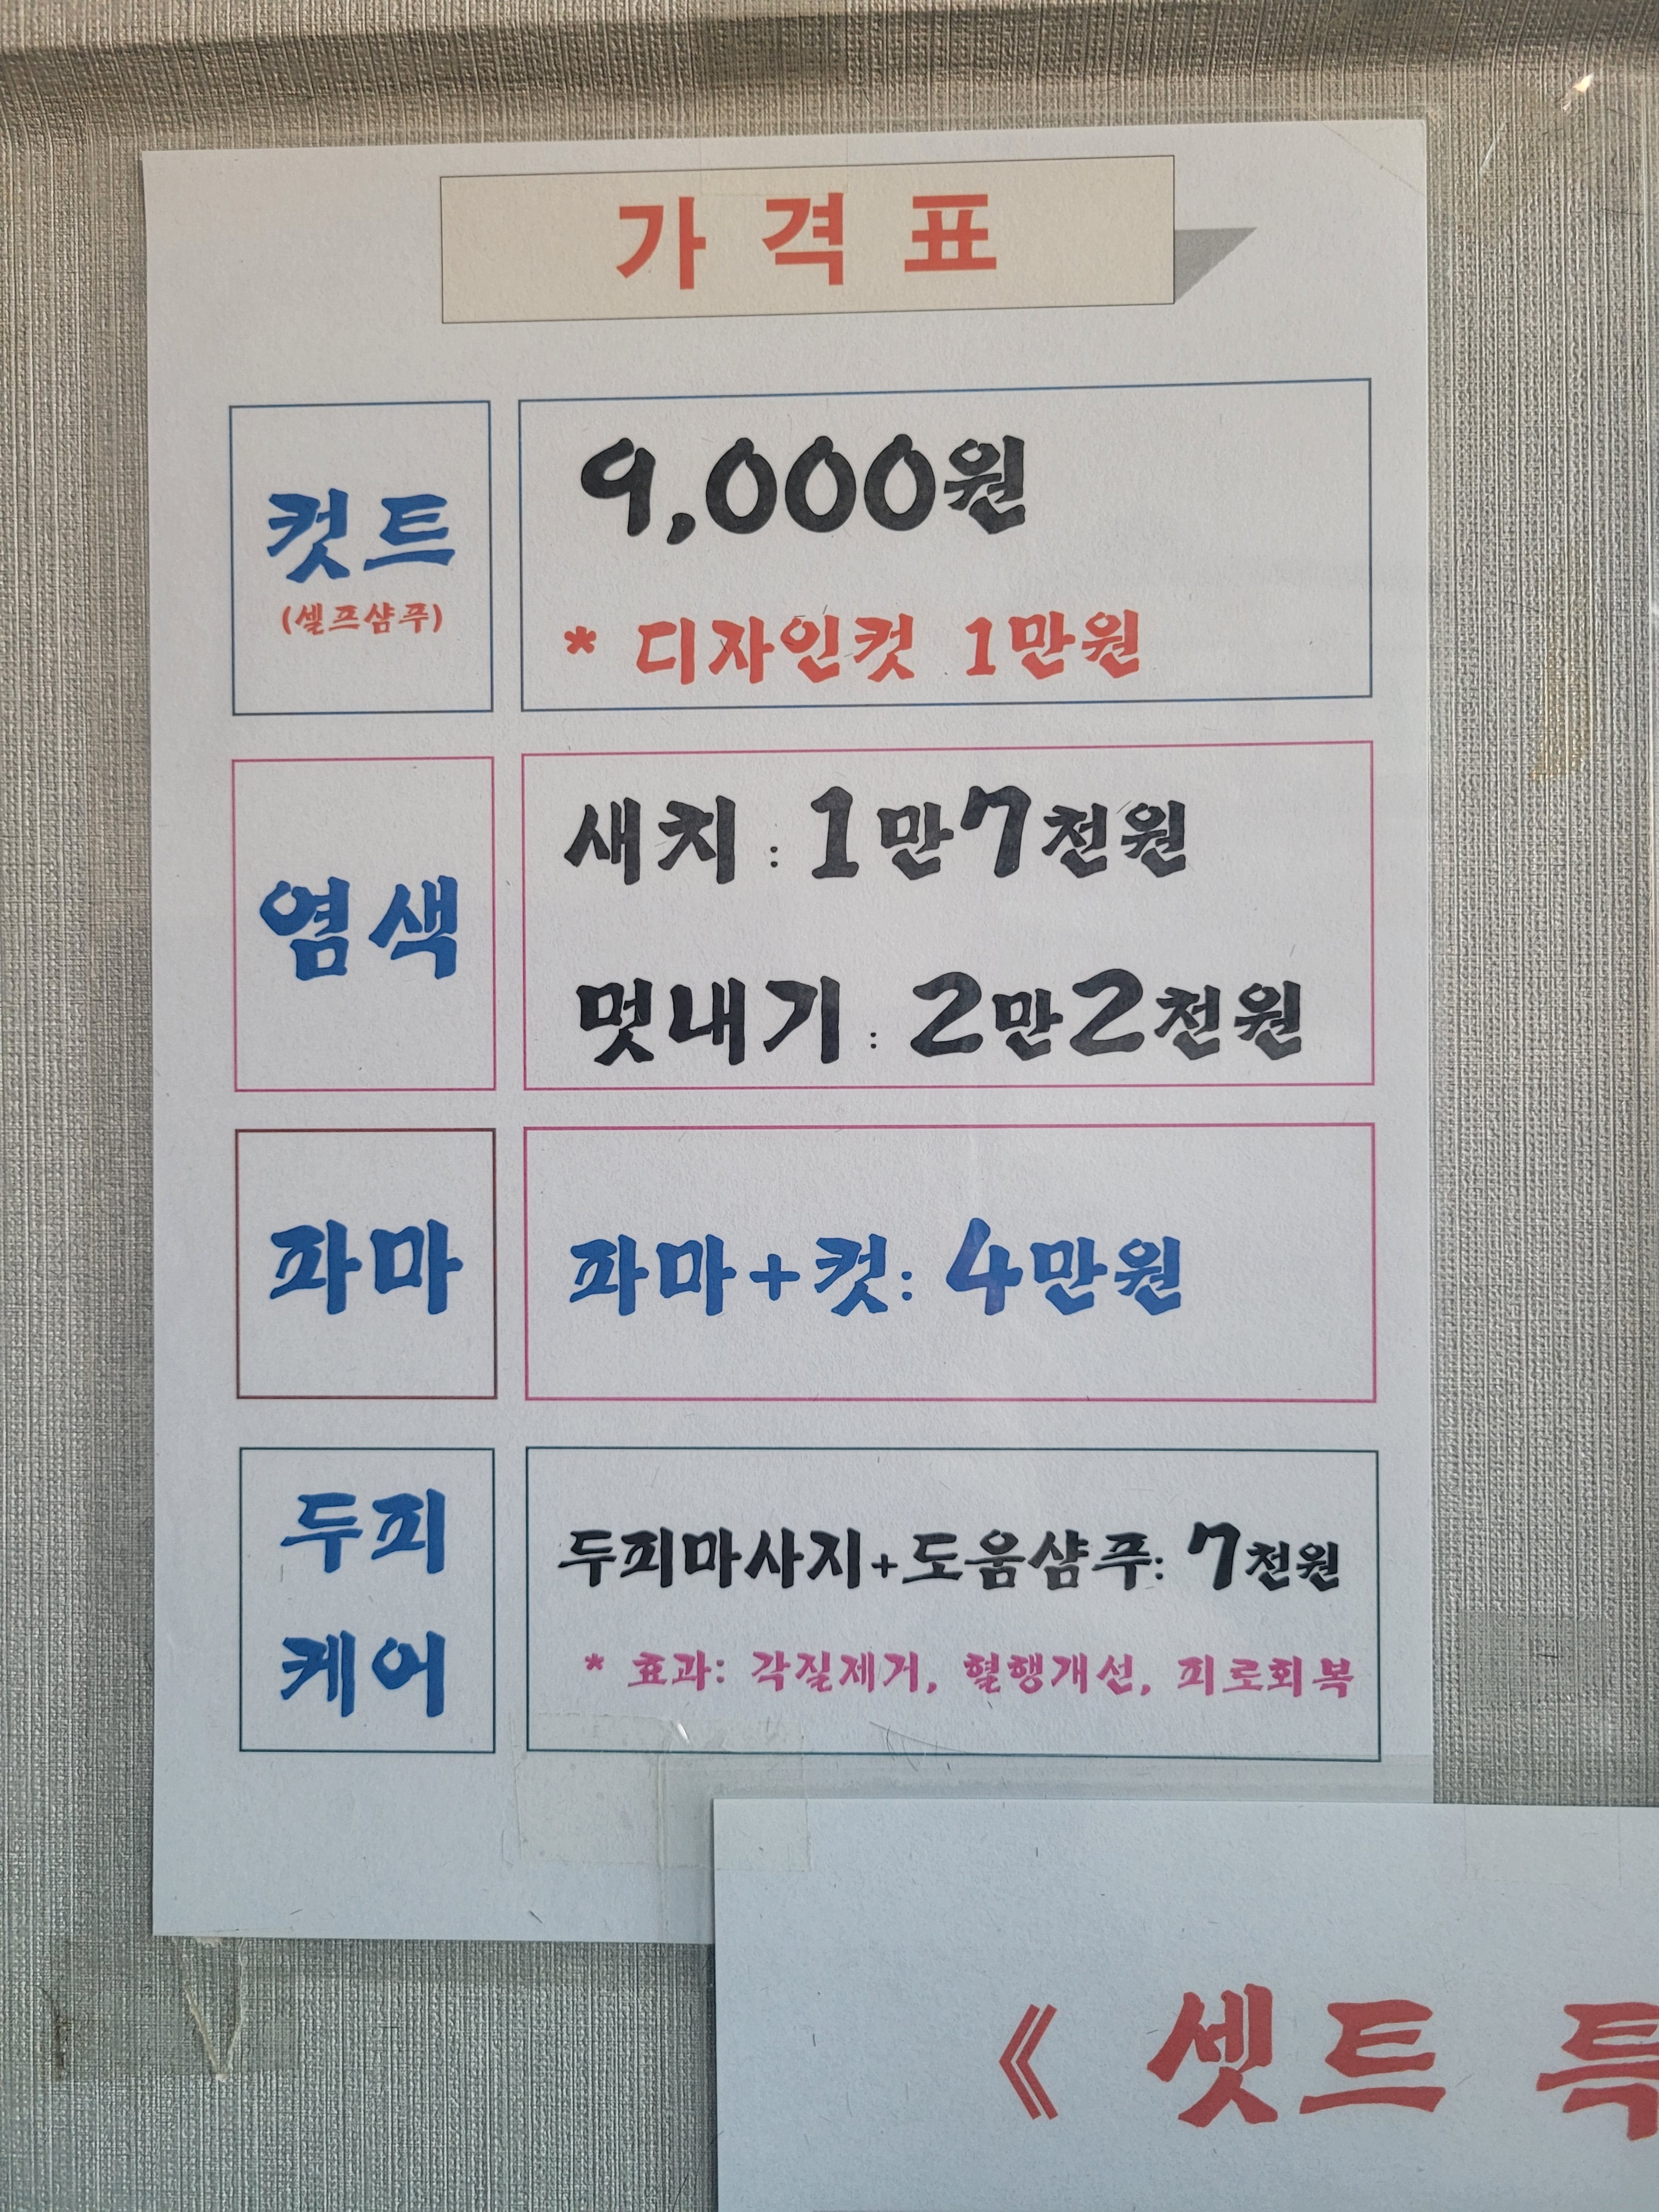 가격표
컷트
(셀프샴푸)
9,000원
* 디자인컷 1만원
염색
새치 : 1만7천원
멋내기 : 2만2천원
파마
파마+컷: 4만원
두피
케어
두피마사지+도움샴푸: 7천원
* 효과: 각질제거, 혈행개선, 피로회복
《 셋트 특